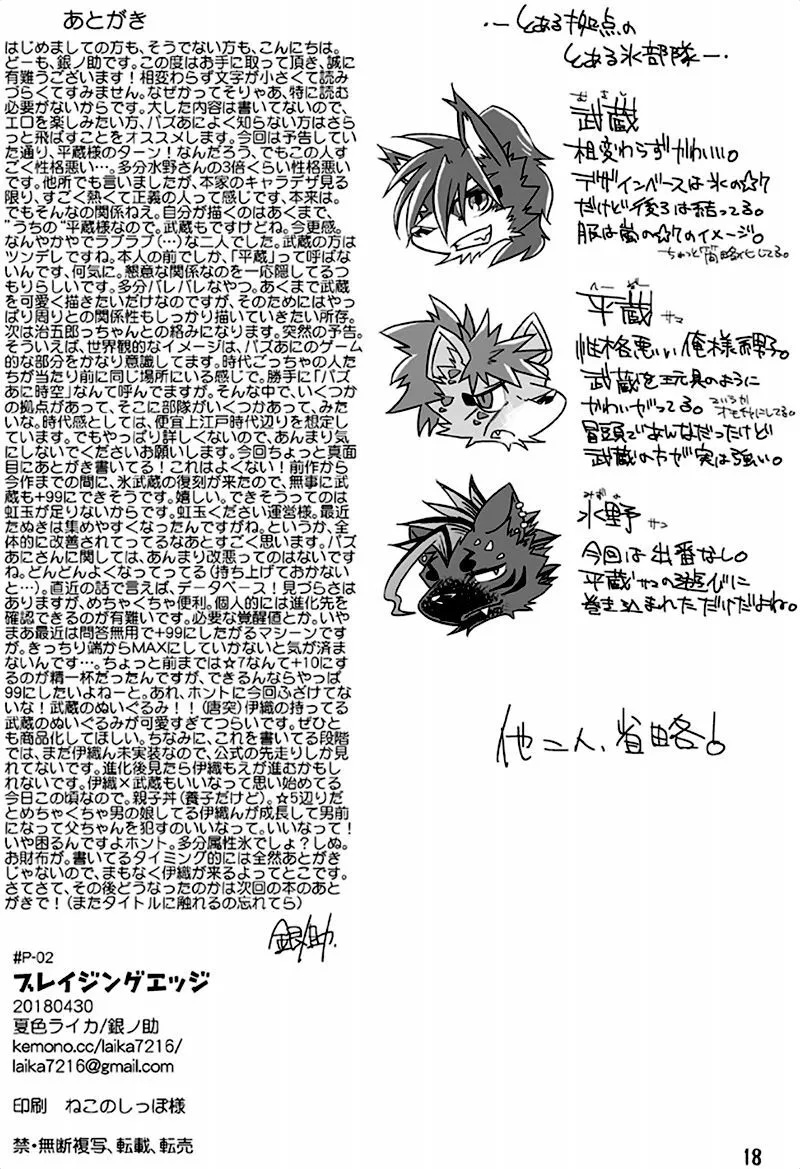 あとがき
はじめましての方も、そうでない方も、こんにちは。
どーも、銀ノ助です。この度はお手に取って頂き、誠に
有難うございます！相変わらず文字が小さくて読み
づらくてすみません。なぜかってそりゃあ、特に読む
必要がないからです。大した内容は書いてないので、
エロを楽しみたい方、パズあによく知らない方はさら
っと飛ばすことをオススメします。今回は予告してい
た通り、平蔵様のターン！なんだろう、でもこの人す
ごく性格悪い…。多分水野さんの3倍くらい性格悪い
です。他所でも言いましたが、本家のキャラデザ見る
限り、すごく熱くて正義の人って感じです、本来は。
でもそんなの関係ねえ。自分が描くのはあくまで、
”うちの”平蔵様なので。武蔵もですけどね。今更感。
なんやかやでラブラブ(…)な二人でした。武蔵の方は
ツンデレですね。本人の前でしか、「平蔵」って呼ばな
いんです、何気に。懇意な関係なのを一応隠してるつ
もりらしいです。多分バレバレなやつ。あくまで武蔵
を可愛く描きたいだけなのですが、そのためにはやっ
ぱり周りとの関係性もしっかり描いていきたい所存。
次は治五郎っちゃんとの絡みになります。突然の予告。
そういえば、世界観的なイメージは、パズあにのゲーム
的な部分をかなり意識してます。時代ごっちゃの人た
ちが当たり前に同じ場所にいる感じで。勝手に「パズ
あに時空」なんて呼んでますが。そんな中で、いくつか
の拠点があって、そこに部隊がいくつかあって、みた
いな。時代感としては、便宜上江戸時代辺りを想定し
ています。でもやっぱり詳しくないので、あんまり気
にしないでくださいお願いします。今回ちょっと真面
目にあとがき書いてる！これはよくない！前作から
今作までの間に、氷武蔵の復刻が来たので、無事に武
蔵も+99にできそうです。嬉しい。できそうってのは
虹玉が足りないからです。虹玉ください運営様。最近
たぬきは集めやすくなったんですがね。というか、全
体的に改善されてってるなあとすごく思います。パズ
あにさんに関しては、あんまり改悪ってのはないです
ね。どんどんよくなってってる(持ち上げておかない
と…)。直近の話で言えば、データベース！見づらさは
ありますが、めちゃくちゃ便利。個人的には進化先を
確認できるのが有難いです。必要な覚醒値とか。いや
まあ最近は問答無用で+99にしたがるマシーンです
が。きっちり端からMAXにしていかないと気が済ま
ないんです…。ちょっと前までは☆7なんて+10にす
るのが精一杯だったんですが、できるんならやっぱ
99にしたいよねーと。あれ、ホントに今回ふざけてな
いな！武蔵のぬいぐるみ！！(唐突)伊織の持ってる
武蔵のぬいぐるみが可愛すぎてつらいです。ぜひと
も商品化してほしい。ちなみに、これを書いてる段階
では、まだ伊織ん未実装なので、公式の先走りしか見
れてないです。進化後見たら伊織もえが進むかもし
れないです。伊織×武蔵もいいなって思い始めてる
今日この頃なので。親子丼(養子だけど)。☆5辺りだ
とめちゃくちゃ男の娘してる伊織んが成長して男前
になって父ちゃんを犯すのいいなって。いいなって！
いや困るんですよホント。多分属性氷でしょ？しぬ。
お財布が。書いてるタイミング的には全然あとがき
じゃないので、まもなく伊織が来るよってとこです。
さてさて、その後どうなったのかは次回の本のあと
がきで！(またタイトルに触れるの忘れてら)
銀ノ助.
#P-02
ブレイジングエッジ
20180430
夏色ライカ/銀ノ助
kemono.cc/laika7216/
laika7216@gmail.com
印刷 ねこのしっぽ様
禁・無断複写、転載、転売
・―とある拠点の
とある氷部隊―・
むさし
武蔵
相変わらずかわいい。
デザインベースは氷の☆7
だけど後ろは結ってる。
服は嵐の☆7のイメージ。
ちょっと簡略化してる。
へーぞー
平蔵サマ
性格悪い俺様男子。
武蔵を玩具のように
かわいがってる。というかオモチャにしてる。
冒頭であんなだったけど
武蔵の方が実は強い。
みずの
水野サン
今回は出番なし。
平蔵サマの遊びに
巻き込まれただけだよね。
他二人、省略！
18